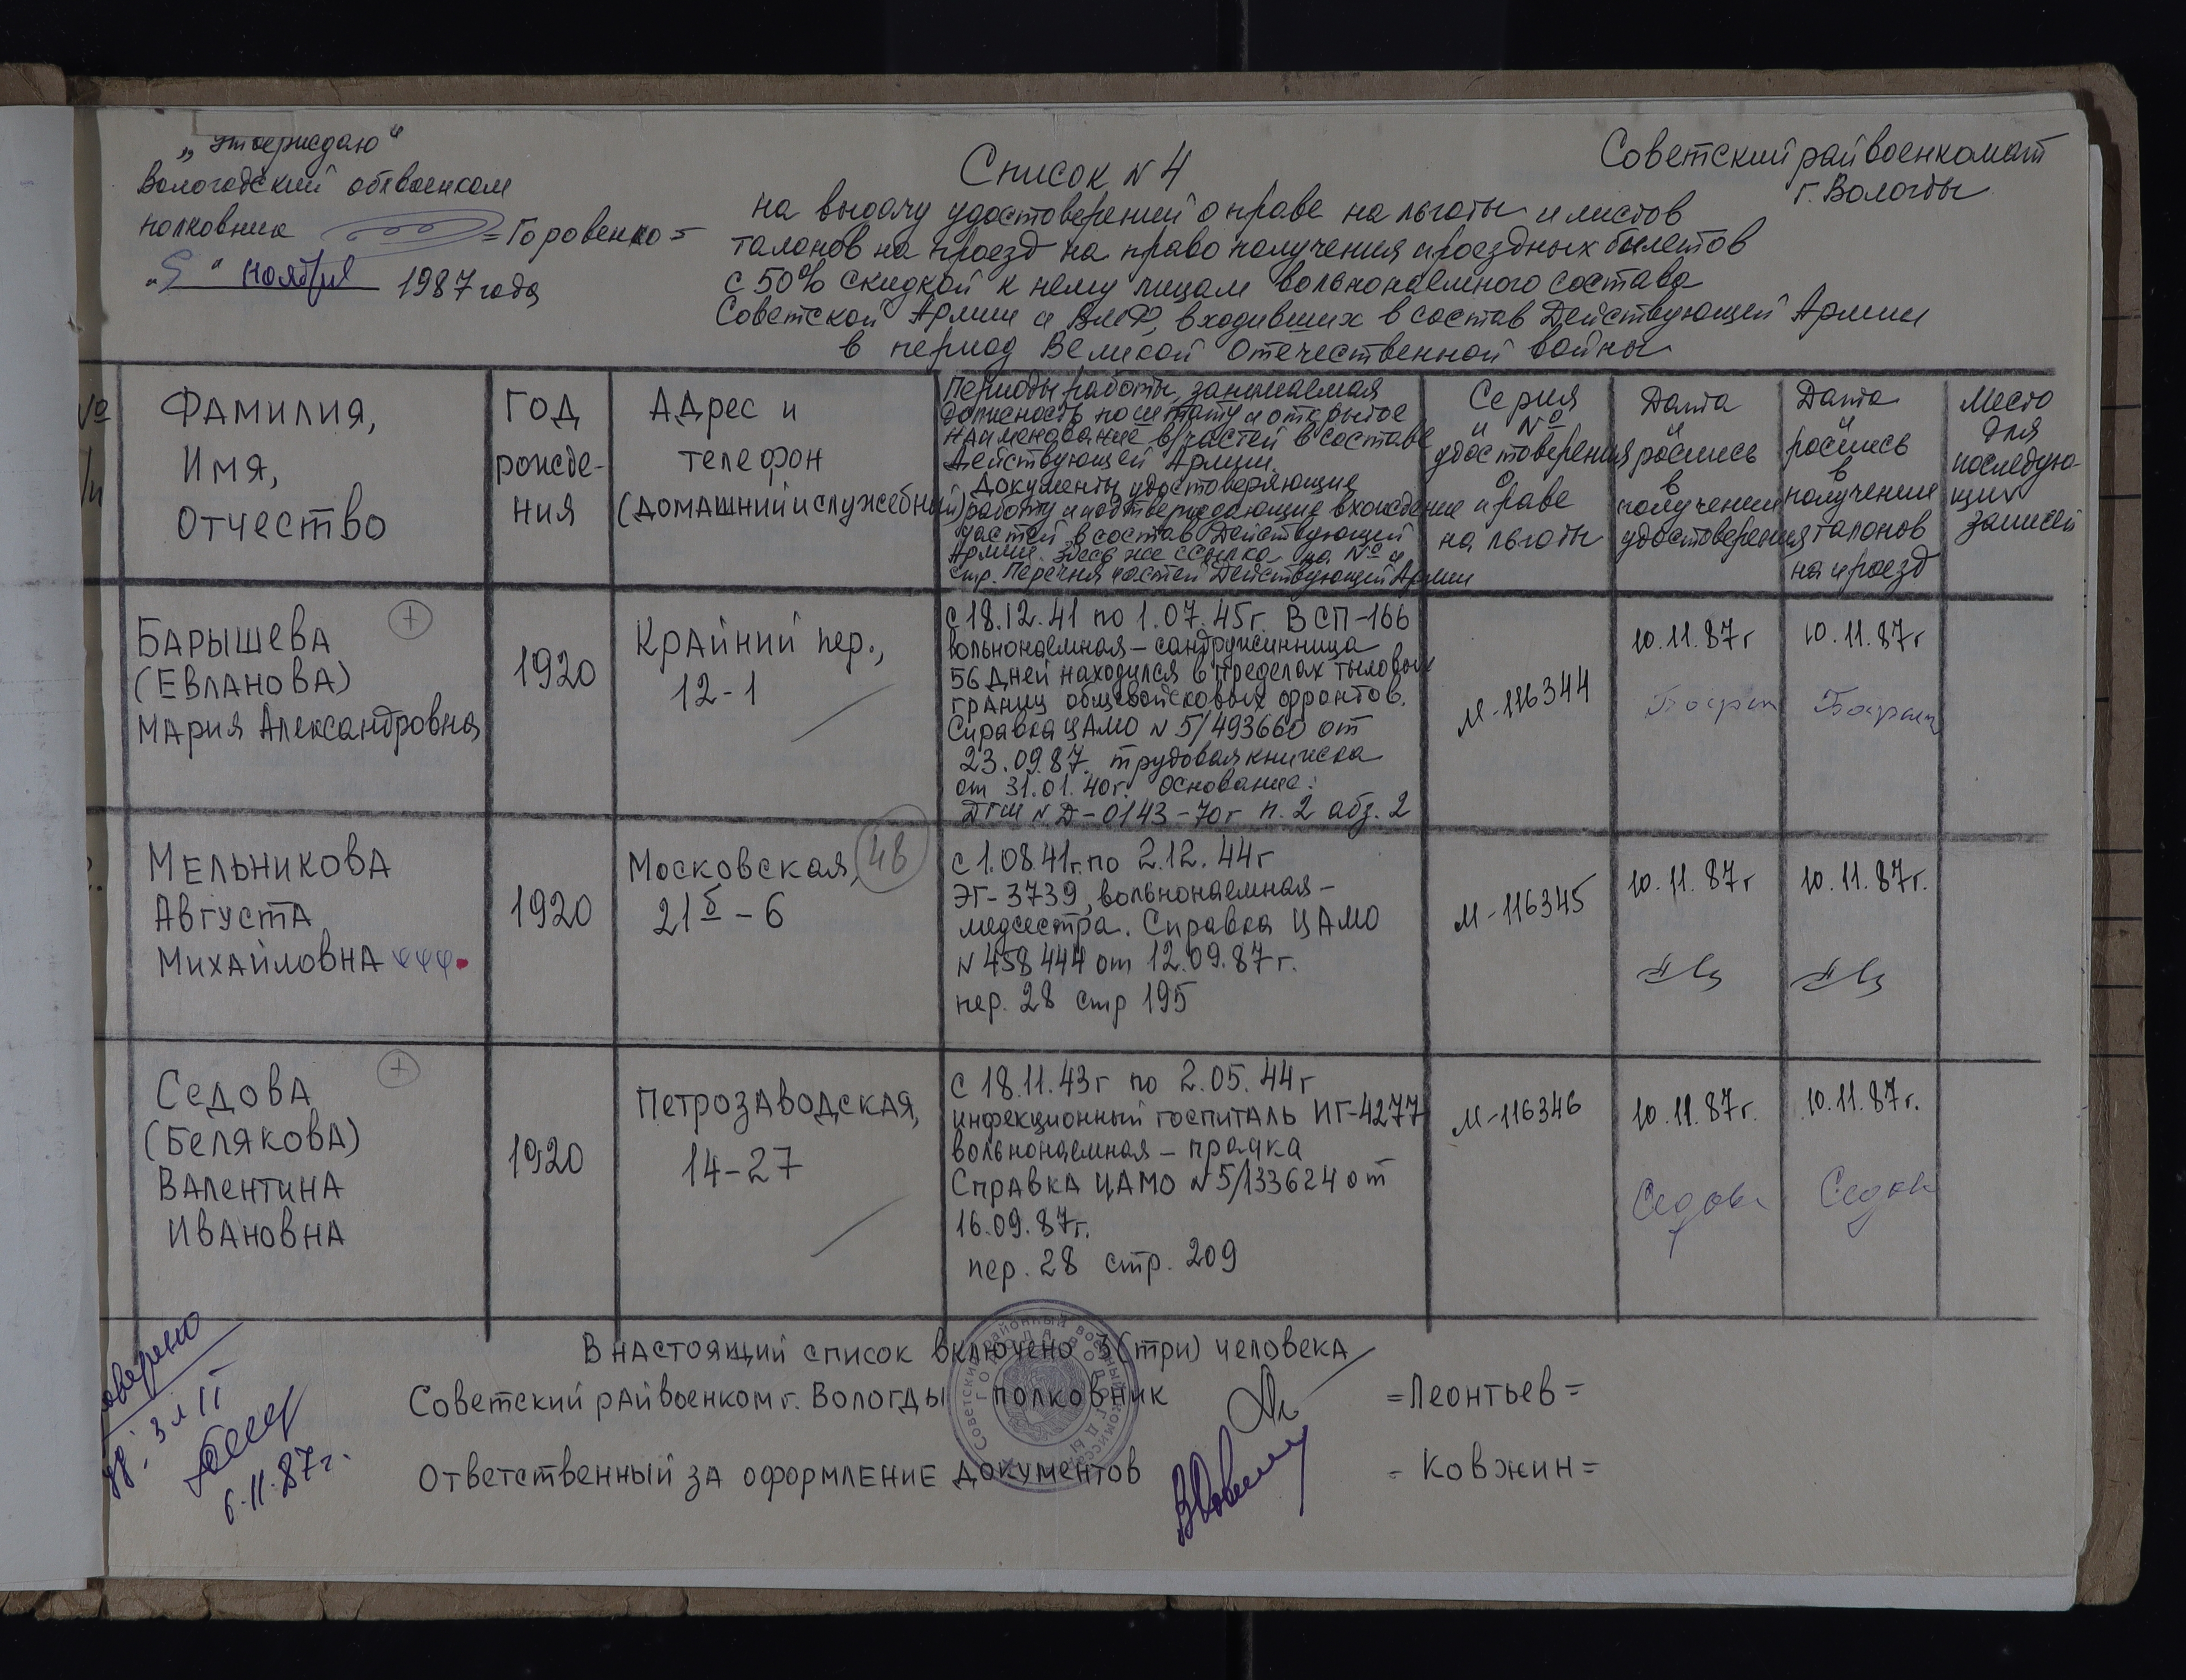 „Утверждаю“
Вологодский облвоенком
полковник =Горовенко=
„5“ ноября 1987 года
Советский райвоенкомат
г. Вологды
Список N 4
на выдачу удостоверений о праве на льготы и листов
талонов на проезд на право получения проездных билетов
с 50% скидкой к нему лицам вольнонаемного состава
Советской Армии и ВМФ, входивших в состав Действующей Армии
в период Великой Отечественной войны
№
/п
Фамилия,
Имя,
Отчество
Год
рожде-
ния
Адрес и
телефон
(домашний и служебный)
Периоды работы, занимаемая
должность по штату и открытое
наименование в/частей в составе
Действующей Армии.
Документы удостоверяющие
работу и подтверждающие вхождение
частей в состав Действующей
Армии. Здесь же ссылка на № и
стр. Перечня частей Действующей Армии
Серия
и №
удостоверения
о праве
на льготы
Дата
и
роспись
в
получении
удостоверения
Дата
и
роспись
в
получении
талонов
на проезд
Место
для
последую-
щих
записей
Барышева +
(Евланова)
Мария Александровна
1920
Крайний пер.,
12-1
с 18.12.41 по 1.07.45г. ВСП-166
вольнонаемная - сандружинница
56 дней находился в пределах тыловых
границ общевойсковых фронтов.
Справка ЦАМО N 5/493660 от
23.09.87. трудовая книжка
от 31.01.40г. Основание:
ДГШ N Д-0143-70г п.2 абз.2
М-116344
10.11.87г
10.11.87г
Мельникова
Августа
Михайловна
1920
Московская,
21б-6
4в
с 1.08.41г. по 2.12.44г
ЭГ-3739, вольнонаемная -
медсестра. Справка ЦАМО
N 458444 от 12.09.87г.
пер. 28 стр 195
М-116345
10.11.87г
10.11.87г.
Седова +
(Белякова)
Валентина
Ивановна
1920
Петрозаводская,
14-27
с 18.11.43г по 2.05.44г
инфекционный госпиталь ИГ-4277
вольнонаемная - прачка
Справка ЦАМО N 5/133624 от
16.09.87г.
пер. 28 стр. 209
М-116346
10.11.87г.
10.11.87г.
Седова
Седов
В настоящий список включено 3 (три) человека
Советский райвоенком г. Вологды полковник =Леонтьев=
Ответственный за оформление документов =Ковжин=
6.11.87г.